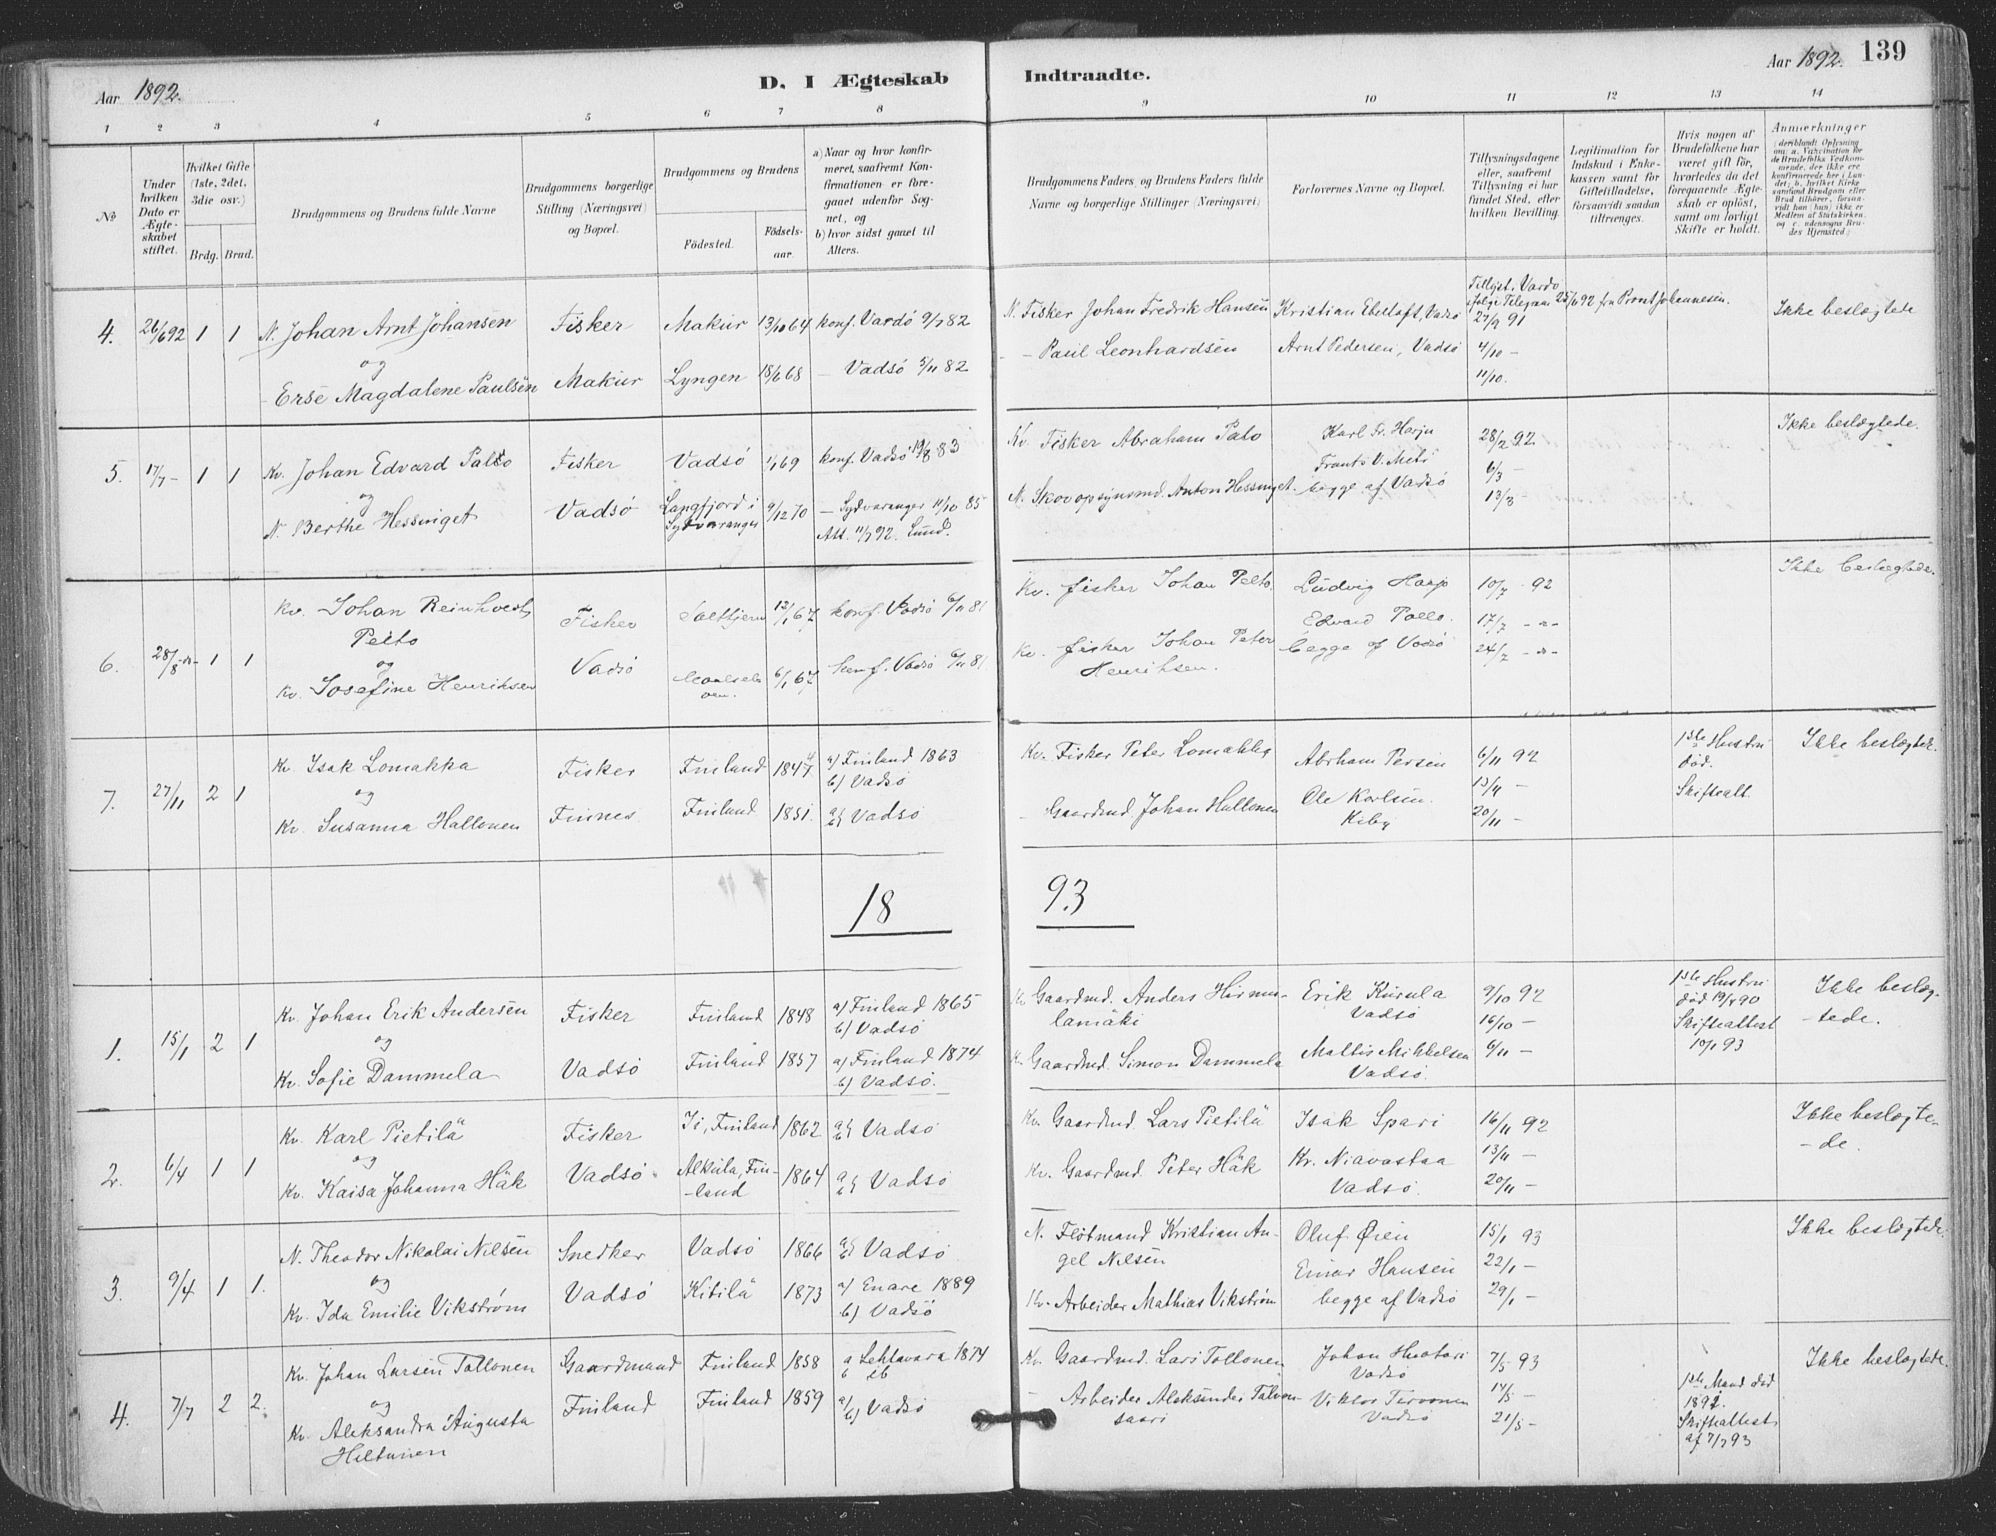 Aar 1892.
D. I Ægteskab
Indtraadte.
Aar 1892. 139
1 2 3 4 5 6 7 8 9 10 11 12 13 14
№
Under hvilken Dato er Ægteskabet stiftet.
Hvilket Gifte (1ste, 2det, 3die osv.)
Brdg. Brud.
Brudgommens og Brudens fulde Navne
Brudgommens borgerlige Stilling (Næringsvei) og Bopæl.
Brudgommens og Brudens
Fødested.
Fødselsaar.
a) Naar og hvor konfirmeret, saafremt Konfirmationen er foregaaet udenfor Sognet, og
b) hvor sidst gaaet til Alters.
Brudgommens Faders og Brudens Faders fulde Navne og borgerlige Stillinger (Næringsvei)
Forlovernes Navne og Bopæl.
Tillysningsdagene eller, saafremt Tillysning ei har fundet Sted, efter hvilken Bevilling.
Legitimation for Indskud i Enkekassen samt for Giftetilladelse, forsaavidt saadan tiltrænges.
Hvis nogen af Brudefolkene har været gift før, hvorledes da det foregaaende Ægteskab er opløst, samt om lovligt Skifte er holdt.
Anmerkninger
4. 26/6 92 1 1 N. Johan Arnt Johansen Fisker Makur 13/10 64 konf. Vardö 9/7 82
og
- Erse Magdalene Paulsen Makur Lyngen 18/6 68 - Vadsö 5/11 82
N. Fisker Johan Fredrik Hansen Kristian Ekeloft, Vadsö
Tillyst i Vardö
ifølge Telegram 25/6 92 fra Provst Johannesen.
27/9 91
Ikke beslægtede
- Paul Leonhardsen Arnt Pedersen, Vadsö 4/10 -
11/10.
5. 17/7 - 1 1 Kv. Johan Edvard Palto Fisker Vadsö 1/1 69 konf. Vadsö 19/8 83
og
N. Berthe Hessinget Vadsö Langfjord i Sydvaranger 9/12 70 - Sydvaranger 11/10 85
Att. 11/7 92. Lund.
Kv. Fisker Abraham Palo Karl Fr. Harju 28/2 92 Ikke beslægtede.
Frants V. Meti 6/3 -
N. Skovopsynsmd. Anton Hessinget. begge af Vadsö 13/3 -
6. 28/8 -"- 1 1 Kv. Johan Reinholdt Fisker 12/1 67 konf. Vadsö 6/11 81
Pelto
og
Kv. Josefine Henriksen Vadsö 6/1 67 konf. Vadsö 6/11 81
Kv. fisker Johan Pelto. Ludvig Harju 10/7 - 92 Ikke beslægtede.
Edvard Pallo. 17/7 -"-
Kv. fisker Johan Peter Henriksen. begge af Vadsö 24/7 -"-
7. 27/11 2 1 Kv. Isak Lomakka Fisker Finland 1847 a) Finland 1863
b) Vadsö
og
Kv. Susanna Hallonen Finnes Finland 1851. a b} Vadsö
Kv. Fisker Peter Lomakka Abrham Persen 6/11 92 1ste Hustru død. Skifteatt. Ikke beslægtede.
13/11 -
- Gaardmd. Johan Hallonen Ole Karlsen. Kiby 20/11 -
18 93
1. 15/1 2 1 Kv. Johan Erik Andersen Fisker Finland 1848 a) Finland 1865
b) Vadsö
og
Kv. Sofie Dammela Vadsö Finland 1857 a) Finland 1874
b) Vadsö.
Kv. Gaardmd. Anders Hirmulamäki Erik Kurula Vadsö 9/10 92 1ste Hustru død 19/4 90 Skifteattest 10/1 93 Ikke beslægtede.
16/10 -
Kv. Gaardmd. Simon Dammela Mattis Mikkelsen Vadsö. 6/11 -
2. 6/4 1 1 Kv. Karl Pietilä Fisker Ii, Finland 1862 a b} Vadsö
og
Kv. Kaisa Johanna Häk Vadsö. Alkula, Finland 1864 a b} Vadsö
Kv. Gaardmd. Lars Pietilä Isak Spari 16/11 92 Ikke beslægtede.
13/11 -
Kv. Gaardmd. Peter Häk Kr. Niavastaa Vadsö. 20/11 -
3. 9/4 1 1. N. Theodor Nikolai Nilsen Snedker Vadsö 1866 a b} Vadsö
og
Kv. Ida Emilie Vikstrøm Vadsö Kitilä 1873 a) Enare 1889
b) Vadsö
N. Flötmand Kristian Angel Nilsen Oluf Øien 15/1 93 Ikke beslægtede.
Einar Hansen 22/1 -
Kv. Arbeider Mathias Vikstrøm begge af Vadsö 29/1 -
4. 7/7 2 2. Kv. Johan Larsen Tollonen Gaardmand Finland 1858 a Lehtavara 1874
b ib
og
Kv. Aleksandra Augusta Hiltunen Finland Finland 1859 a/ b) Vadsö
Kv. Gaardmd. Lars Tollonen Johan Huotari Vadsö 7/5 93 Ikke beslægtede.
14/5 -
- Arbeider Aleksander Talvensaari Viktor Turvonen Vadsö 21/5 -
1ste Mand død 1892. Skifteattest af 7/7 93